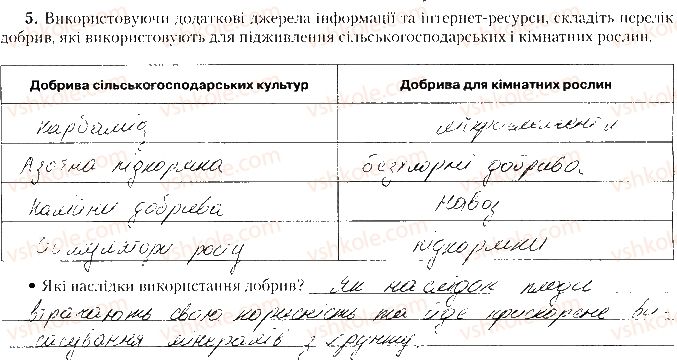 5. Використовуючи додаткові джерела інформації та інтернет-ресурси, складіть перелік
добрив, які використовують для підживлення сільськогосподарських і кімнатних рослин.
Добрива сільськогосподарських культур Добрива для кімнатних рослин
Карбамід
Азотна підкормка безхлорні добрива.
Калійні добрева Навоз
Стимулятори росту підкормки
• Які наслідки використання добрив? Як наслідок плоди
втрачають свою корисність та йде прискорене ви-
снування минералів з грунту.
vshkole.com